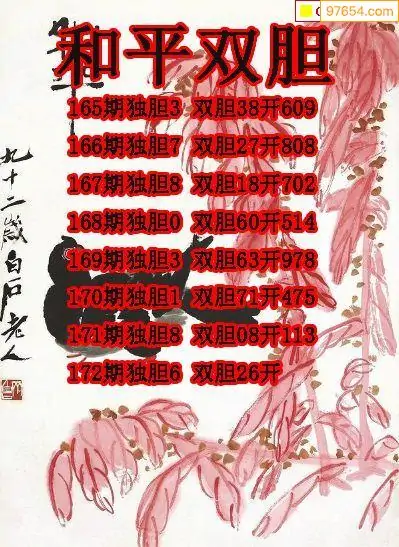 97654.com
和平双胆
165期独胆3 双胆38开609
166期独胆7 双胆27开808
167期独胆8 双胆18开702
168期独胆0 双胆60开514
169期独胆3 双胆63开978
170期独胆1 双胆71开475
171期独胆8 双胆08开113
172期独胆6 双胆26开
九十二歲白石老人